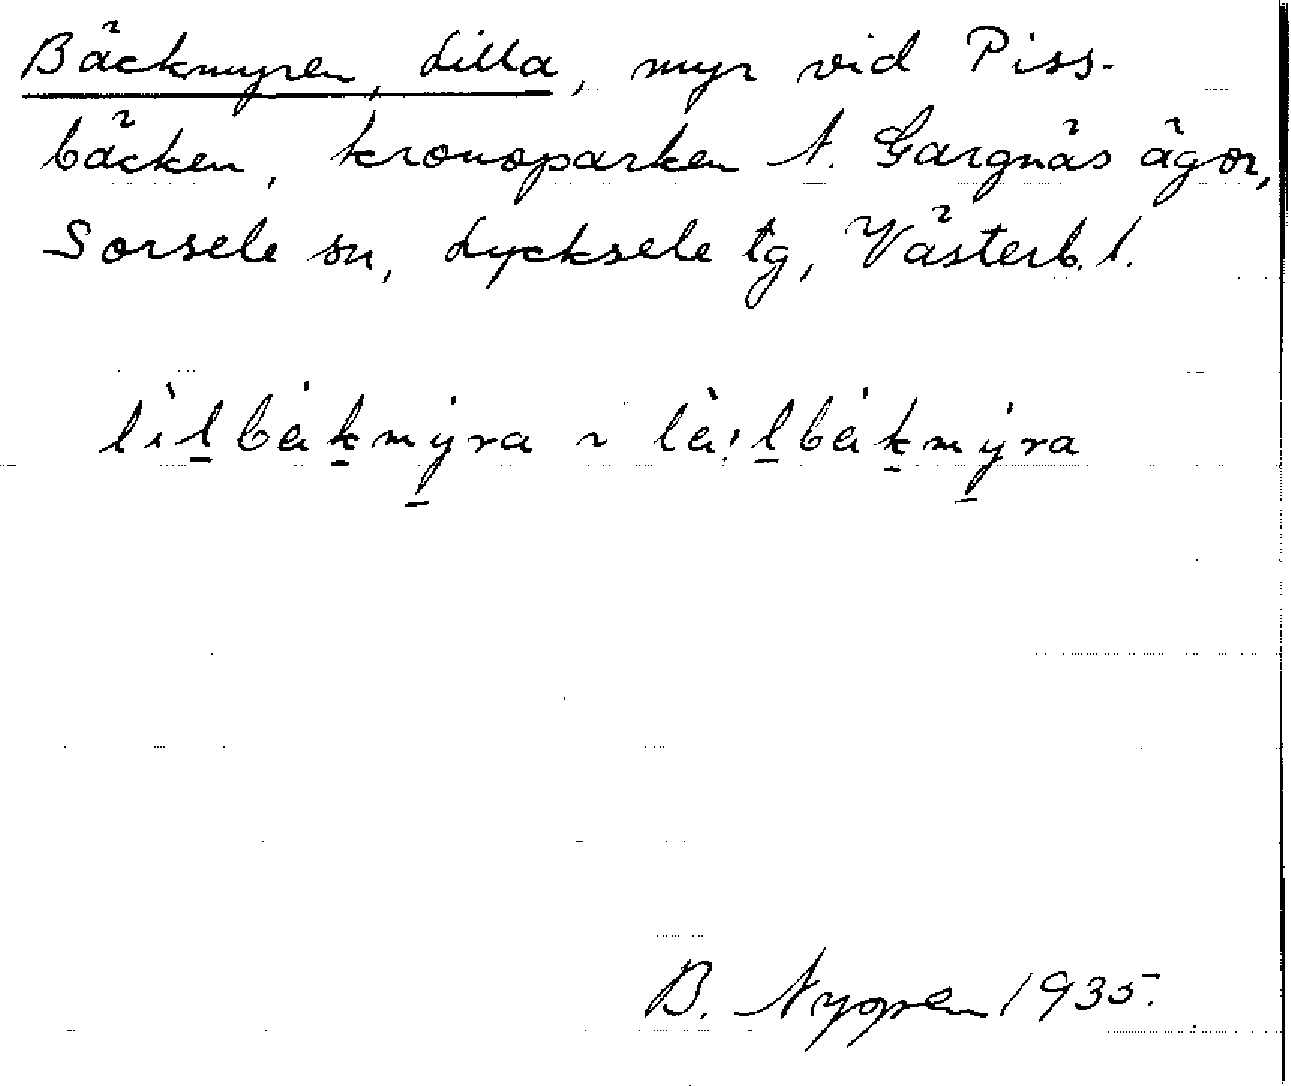 Bäckmyren, Lilla, myr vid Piss-
bäcken, kronoparken N. Gargnäs ägor,
Sorsele sn, Lycksele tg, Västerb. l.
B. Nygren 1935.